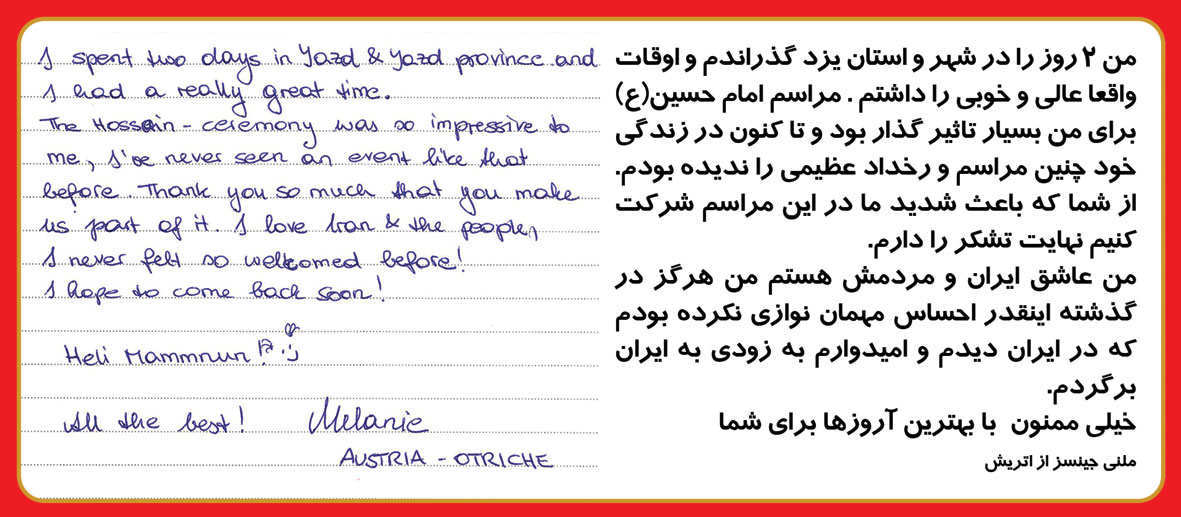 I spent two days in Yazd & Yazd province and
I had a really great time.
The Hossein - ceremony was so impressive to
me, I've never seen an event like that
before. Thank you so much that you make
us part of it. I love Iran & the people,
I never felt so welcomed before!
I hope to come back soon!
Heli Mammnun!
All the best! Melanie
AUSTRIA - OTRICHE
من ۲ روز را در شهر و استان یزد گذراندم و اوقات
واقعا عالی و خوبی را داشتم . مراسم امام حسین(ع)
برای من بسیار تاثیر گذار بود و تا کنون در زندگی
خود چنین مراسم و رخداد عظیمی را ندیده بودم.
از شما که باعث شدید ما در این مراسم شرکت
کنیم نهایت تشکر را دارم.
من عاشق ایران و مردمش هستم من هرگز در
گذشته اینقدر احساس مهمان نوازی نکرده بودم
که در ایران دیدم و امیدوارم به زودی به ایران
برگردم.
خیلی ممنون با بهترین آروزها برای شما
ملنی جینسز از اتریش